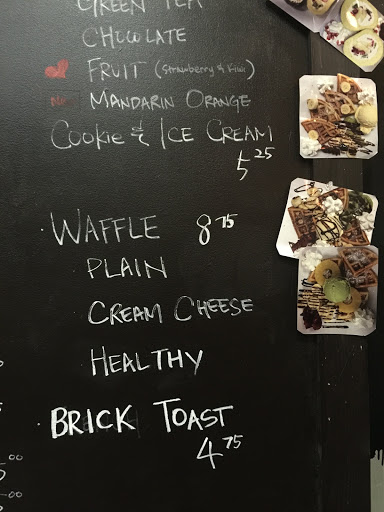 GREEN TEA
CHOCOLATE
FRUIT (Strawberry & Kiwi)
MANDARIN ORANGE
COOKIE & ICE CREAM
5.25
· WAFFLE 8.75
PLAIN
CREAM CHEESE
HEALTHY
· BRICK TOAST
4.75